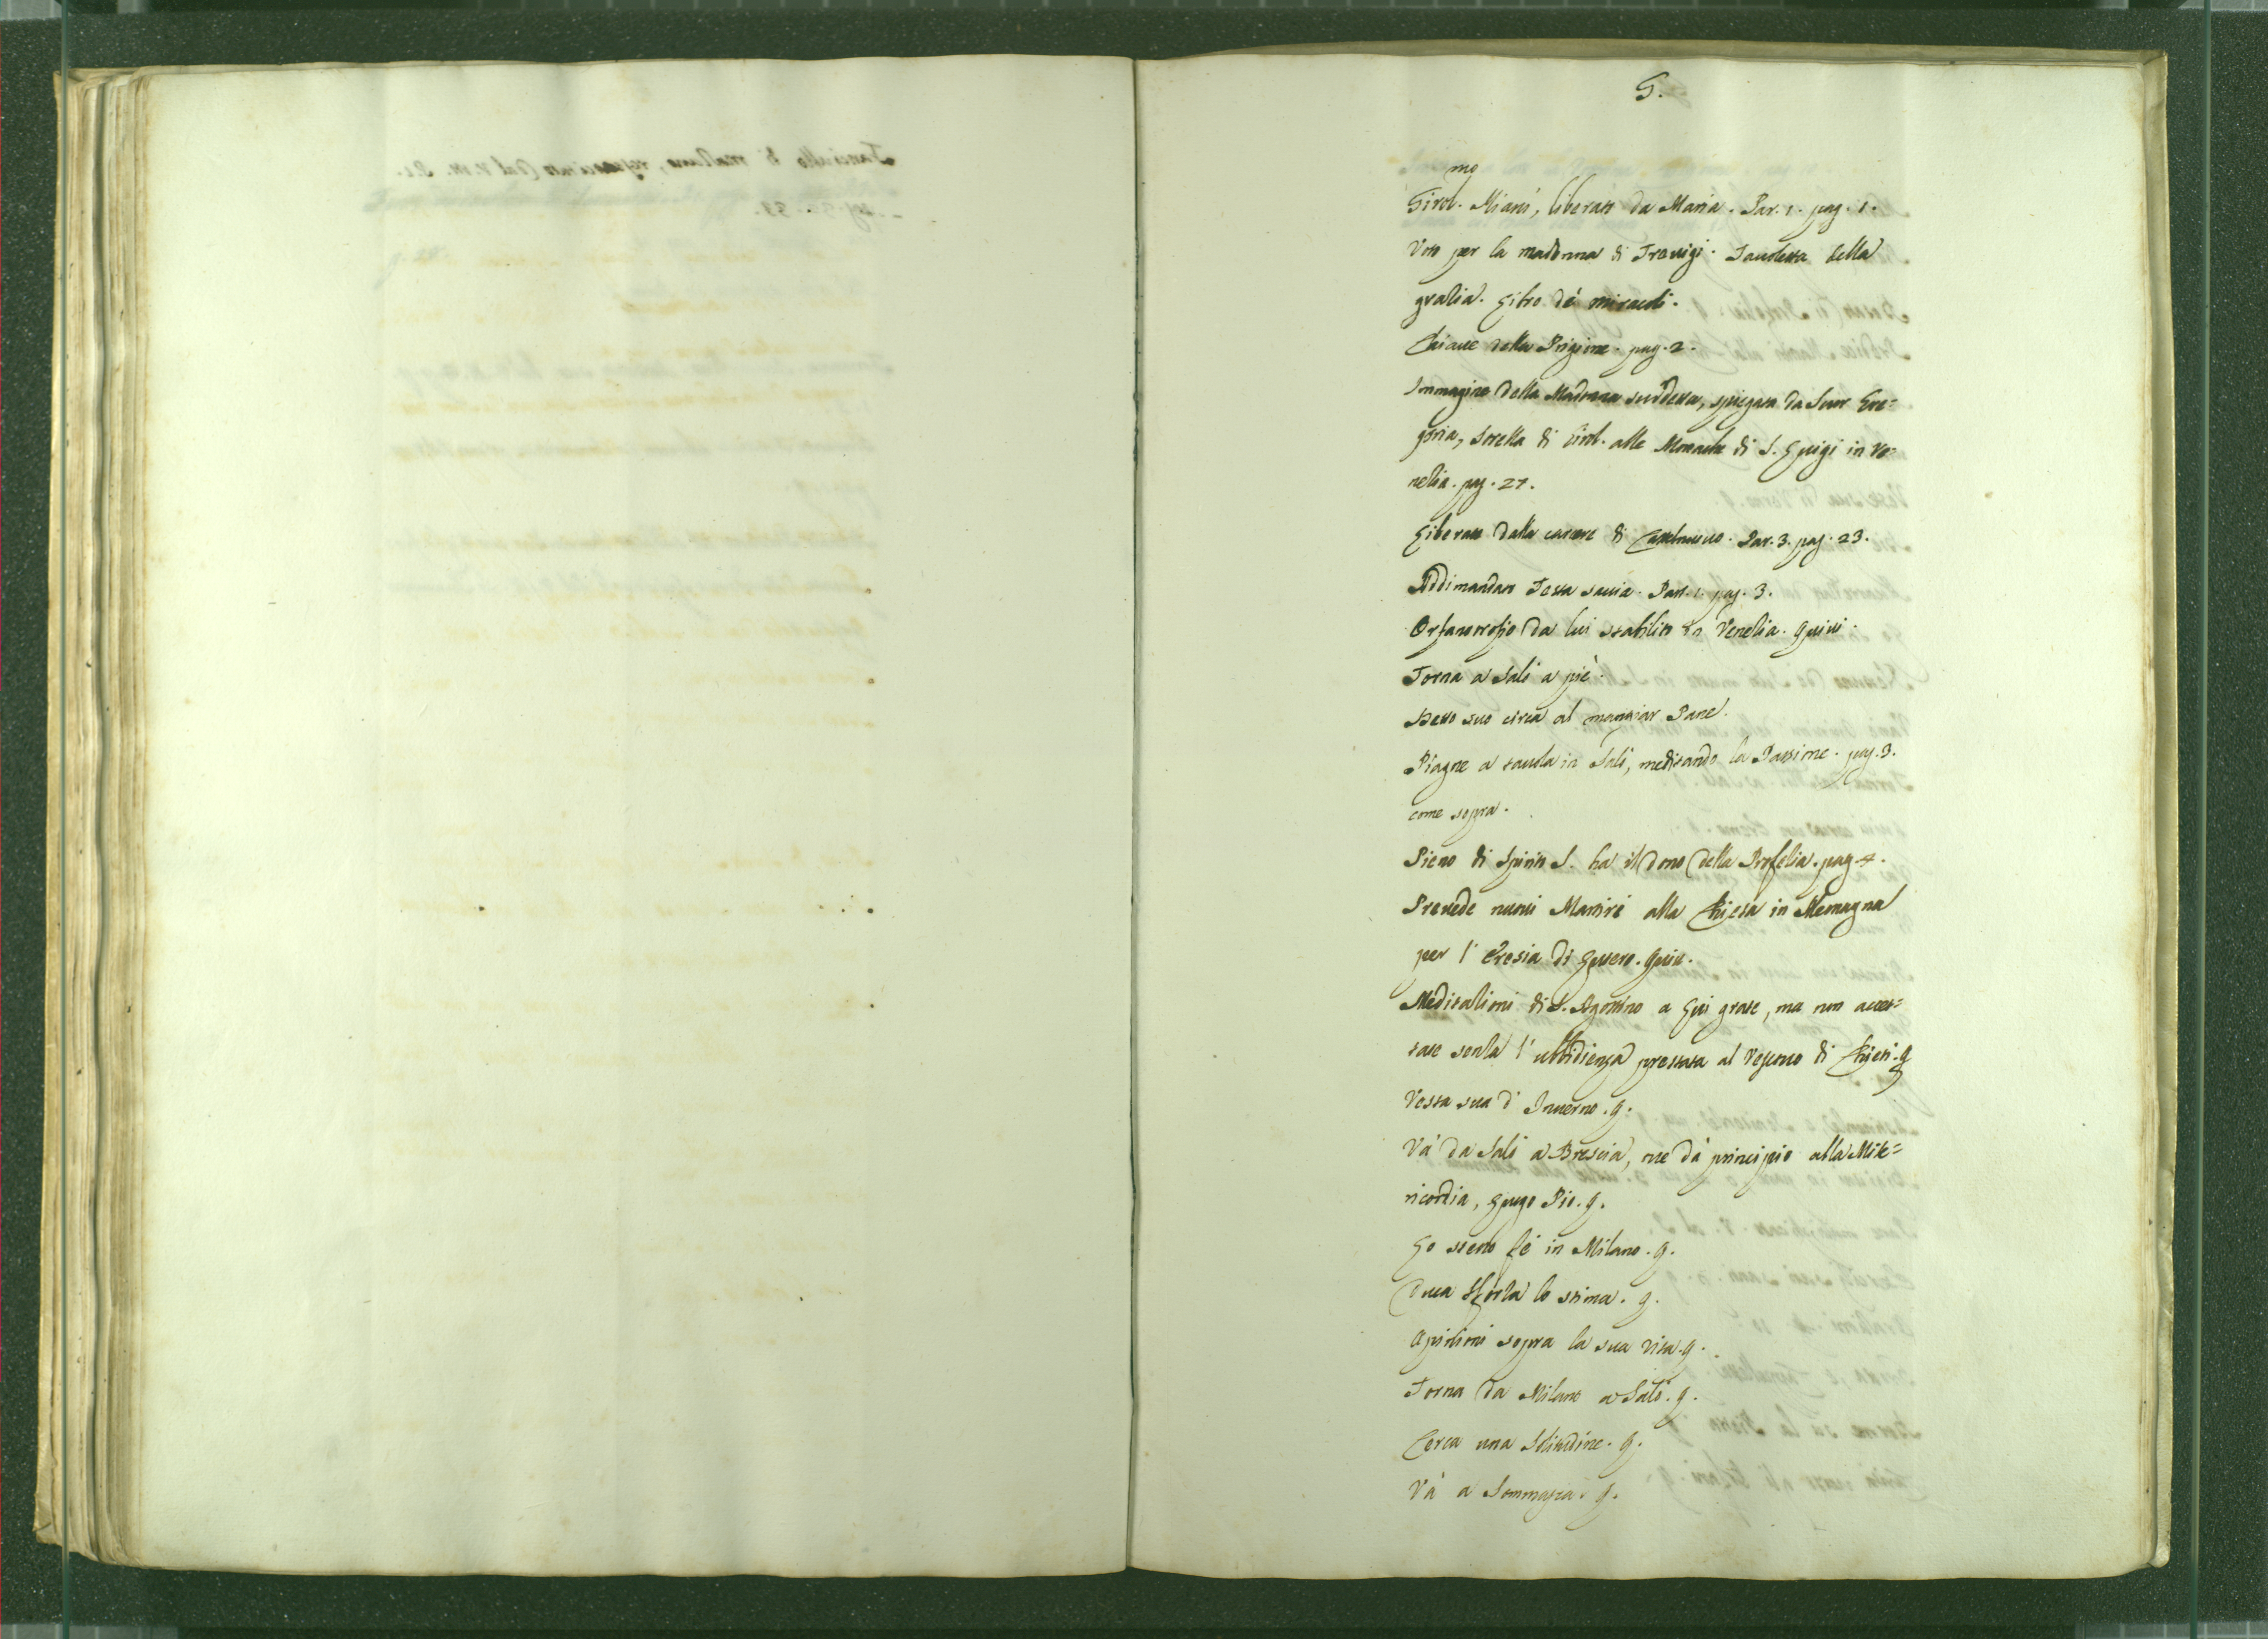 G.
mo
Girol. Miani, liberato da Maria. Par. 1. pag. 1.
Voto per la madonna di Treuigi. Tauoletta della
gratia. Libro de' miracoli.
Chiaue della Prigione. pag. 2.
Immagine della Madonna suddetta, spiegata da Suor Gre=
goria, sorella di Girol. alle Monache di S. Luigi in Ve=
netia. pag. 27.
Liberato dalla carcere di Castelnuouo. Par. 3. pag. 23.
Addimandato Testa sauia. Part. 1. pag. 3.
Orfanotrofio da lui stabilito in Venetia. Quiui.
Torna a Salò a piè.
Detto suo circa al mangiar Pane.
Piagne a tauola in Salò, meditando la Passione. pag. 3.
come sopra.
Pieno di Spirito S. ha il dono della Profetia. pag. 4.
Preuede nuoui Martiri alla Chiesa in Alemagna
per l' Eresia di Lutero. Quiu.
Meditationi di S. Agostino a Lui grate, ma non accet=
tate senza l' ubbidienza prestata al Vescouo di Chieti. q
Vesta sua d' Inuerno. q.
Và da Salò a Brescia, oue dà principio alla Mise=
ricordia, Luogo Pio. q.
Lo stesso fè in Milano. q.
Duca Sforza lo stima. q.
Opinioni sopra la sua vita. q.
Torna da Milano a Salò. q.
Cerca una Solitudine. q.
Và a Sommasca. q.